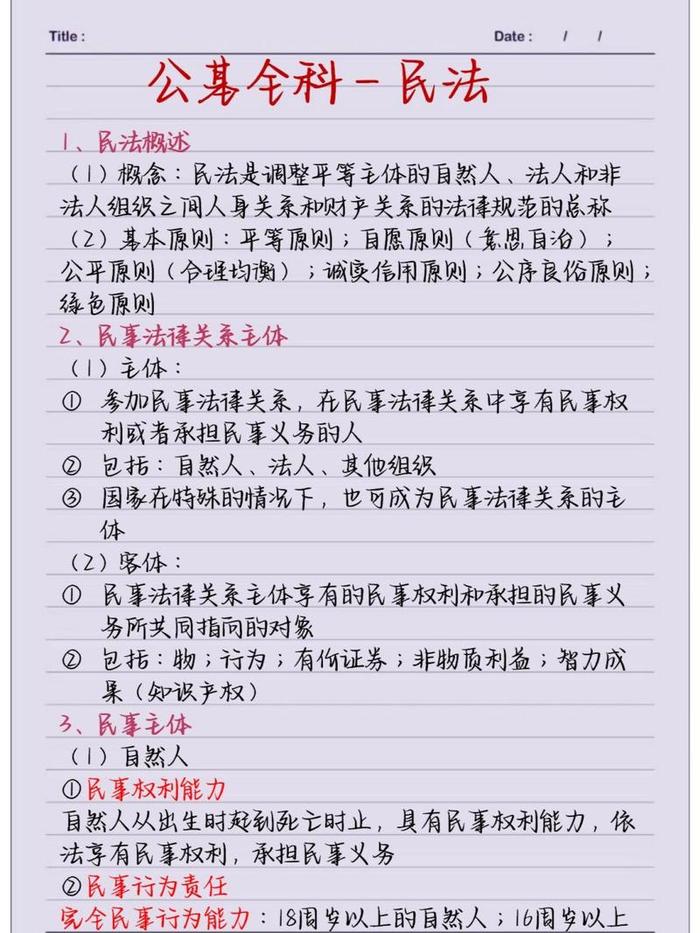 Title :
Date : / /
公基全科-民法
1、民法概述
（1）概念：民法是调整平等主体的自然人、法人和非
法人组织之间人身关系和财产关系的法律规范的总称
（2）基本原则：平等原则；自愿原则（意思自治）；
公平原则（合理均衡）；诚实信用原则；公序良俗原则；
绿色原则
2、民事法律关系主体
（1）主体：
① 参加民事法律关系，在民事法律关系中享有民事权
利或者承担民事义务的人
② 包括：自然人、法人、其他组织
③ 国家在特殊的情况下，也可成为民事法律关系的主
体
（2）客体：
① 民事法律关系主体享有的民事权利和承担的民事义
务所共同指向的对象
② 包括：物；行为；有价证券；非物质利益；智力成
果（知识产权）
3、民事主体
（1）自然人
①民事权利能力
自然人从出生时起到死亡时止，具有民事权利能力，依
法享有民事权利，承担民事义务
②民事行为责任
完全民事行为能力：18周岁以上的自然人；16周岁以上